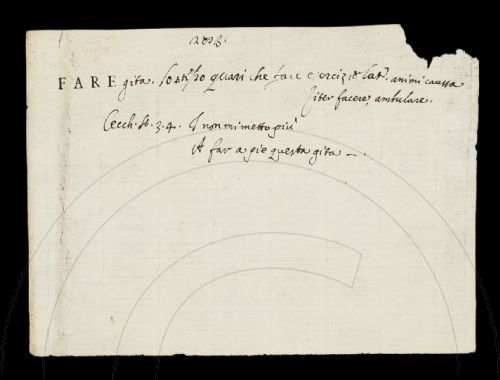 FARE gita. che face esercizio Lat. animi caussa
iter facere, ambulare.
Cecch. St. 3. 4. I non mi metto più
A far a piè questa gita —.